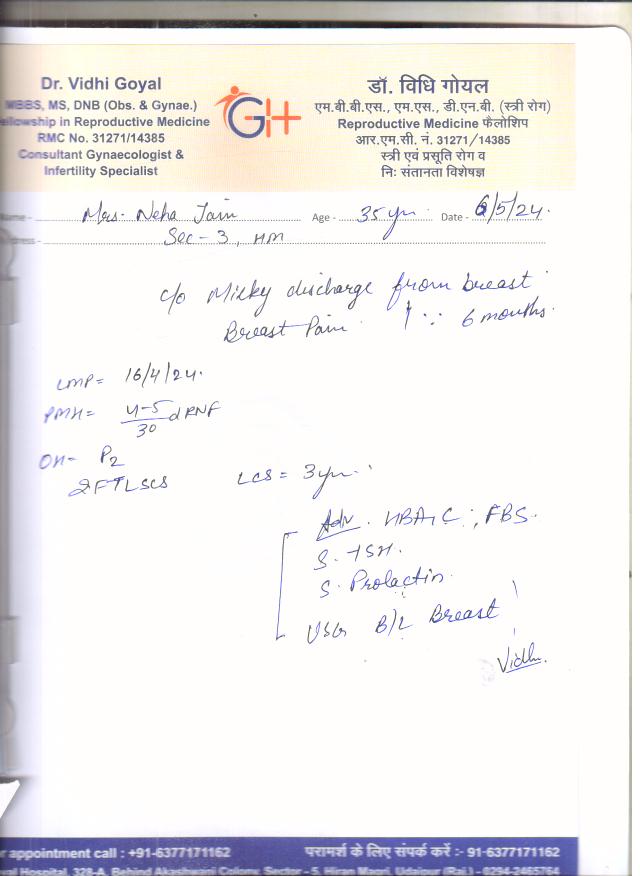 Dr. Vidhi Goyal
MBBS, MS, DNB (Obs. & Gynae.)
ellowship in Reproductive Medicine
RMC No. 31271/14385
Consultant Gynaecologist &
Infertility Specialist
GH
डॉ. विधि गोयल
एम.बी.बी.एस., एम.एस., डी.एन.बी. (स्त्री रोग)
Reproductive Medicine फैलोशिप
आर.एम.सी. नं. 31271/14385
स्त्री एवं प्रसूति रोग व
निः संतानता विशेषज्ञ
Name - Mrs. Neha Jain Age - 35 yr. Date - 6/5/24.
Address - Sec-3, HM
c/o Milky discharge from breast
Breast Pain ∵ 6 months.
LMP = 16/4/24.
PMH = 4-5/30 d RNF
OH = P2
2 FTLSCS LCS = 3 yr.
Adv. HBA1C, FBS.
S. TSH.
S. Prolactin.
USG B/L Breast
Vidhi.
r appointment call : +91-6377171162 परामर्श के लिए संपर्क करें :- 91-6377171162
yal Hospital, 328-A, Behind Akashwani Colony, Sector - 5, Hiran Magri, Udaipur (Raj.) - 0294-2465764